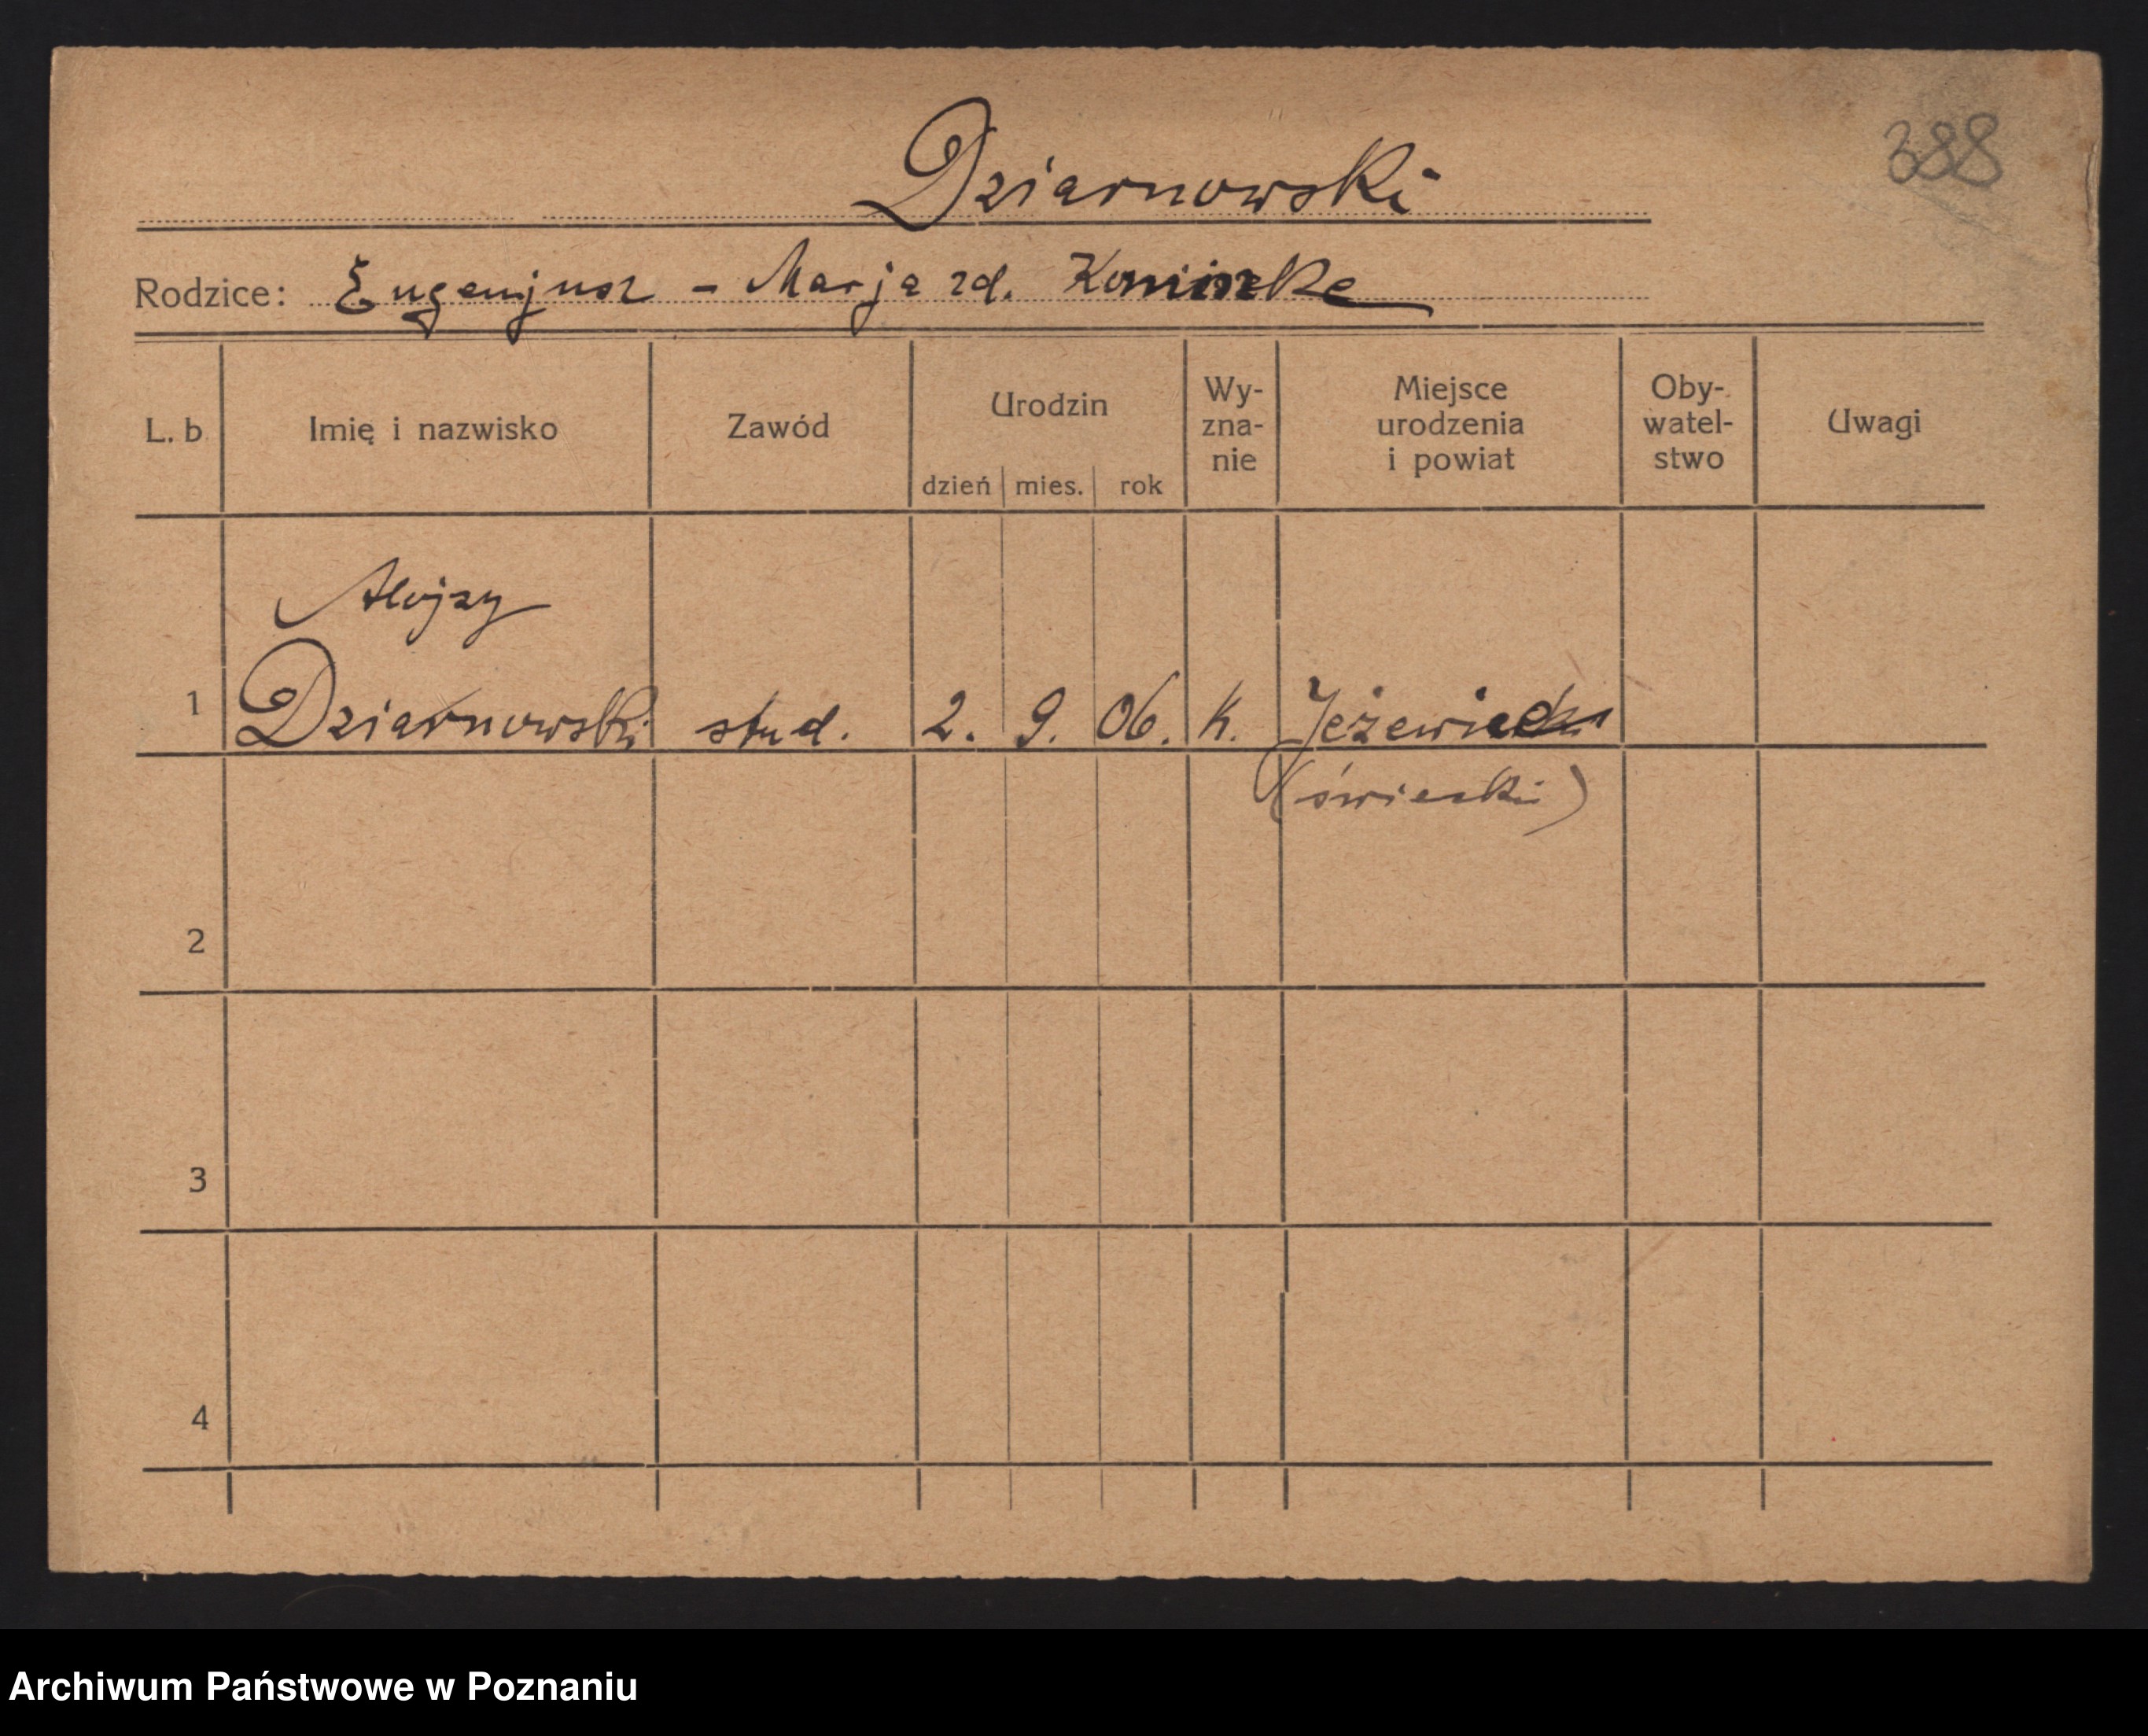 388
Dziarnowski
Rodzice: Eugenjusz - Marja zd.
L. b Imię i nazwisko Zawód Urodzin dzień mies. rok Wy-zna-nie Miejsce urodzenia i powiat Oby-watel-stwo Uwagi
Alojzy
1 Dziarnowski stud. 2. 9. 06. k.
(świecki)
2
3
4
Archiwum Państwowe w Poznaniu